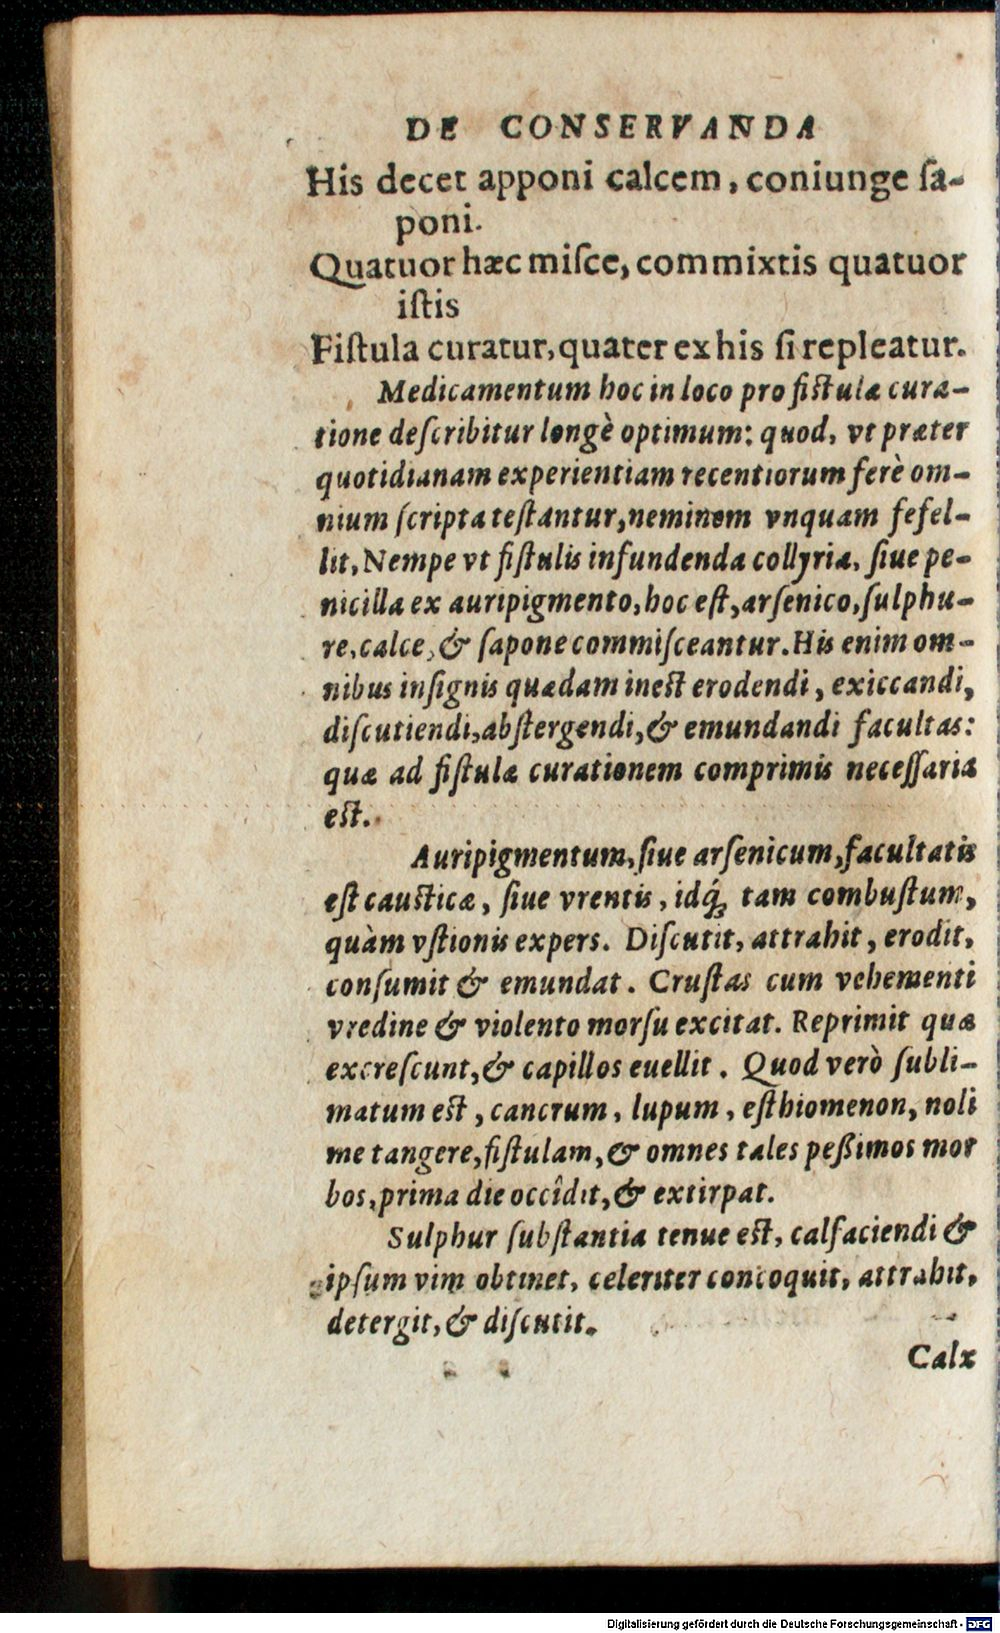 DE CONSERVANDA
His decet apponi calcem, coniunge ſa-
poni.
Quatuor hæc miſce, commixtis quatuor
iſtis
Fiſtula curatur, quater ex his ſi repleatur.
Medicamentum hoc in loco pro fiſtulæ cura-
tione deſcribitur longè optimum: quod, vt præter
quotidianam experientiam recentiorum ferè om-
nium ſcripta teſtantur, neminem vnquam fefel-
lit, Nempe vt fiſtulis infundenda collyria, ſiue pe-
nicilla ex auripigmento, hoc eſt, arſenico, ſulphu-
re, calce, & ſapone commiſceantur. His enim om-
nibus inſignis quædam ineſt erodendi, exiccandi,
diſcutiendi, abſtergendi, & emundandi facultas:
quæ ad fiſtulæ curationem comprimis neceſſaria
eſt.
Auripigmentum, ſiue arſenicum, facultatis
eſt cauſticæ, ſiue vrentis, idq́; tam combuſtum,
quàm vſtionis expers. Diſcutit, attrahit, erodit,
conſumit & emundat. Cruſtas cum vehementi
vredine & violento morſu excitat. Reprimit quæ
excreſcunt, & capillos euellit. Quod verò ſubli-
matum eſt, cancrum, lupum, eſthiomenon, noli
me tangere, fiſtulam, & omnes tales peßimos mor
bos, prima die occîdit, & extirpat.
Sulphur ſubſtantia tenue eſt, calfaciendi &
ipſum vim obtinet, celeriter concoquit, attrahit,
detergit, & diſcutit.
Calx
Digitalisierung gefördert durch die Deutsche Forschungsgemeinschaft - DFG